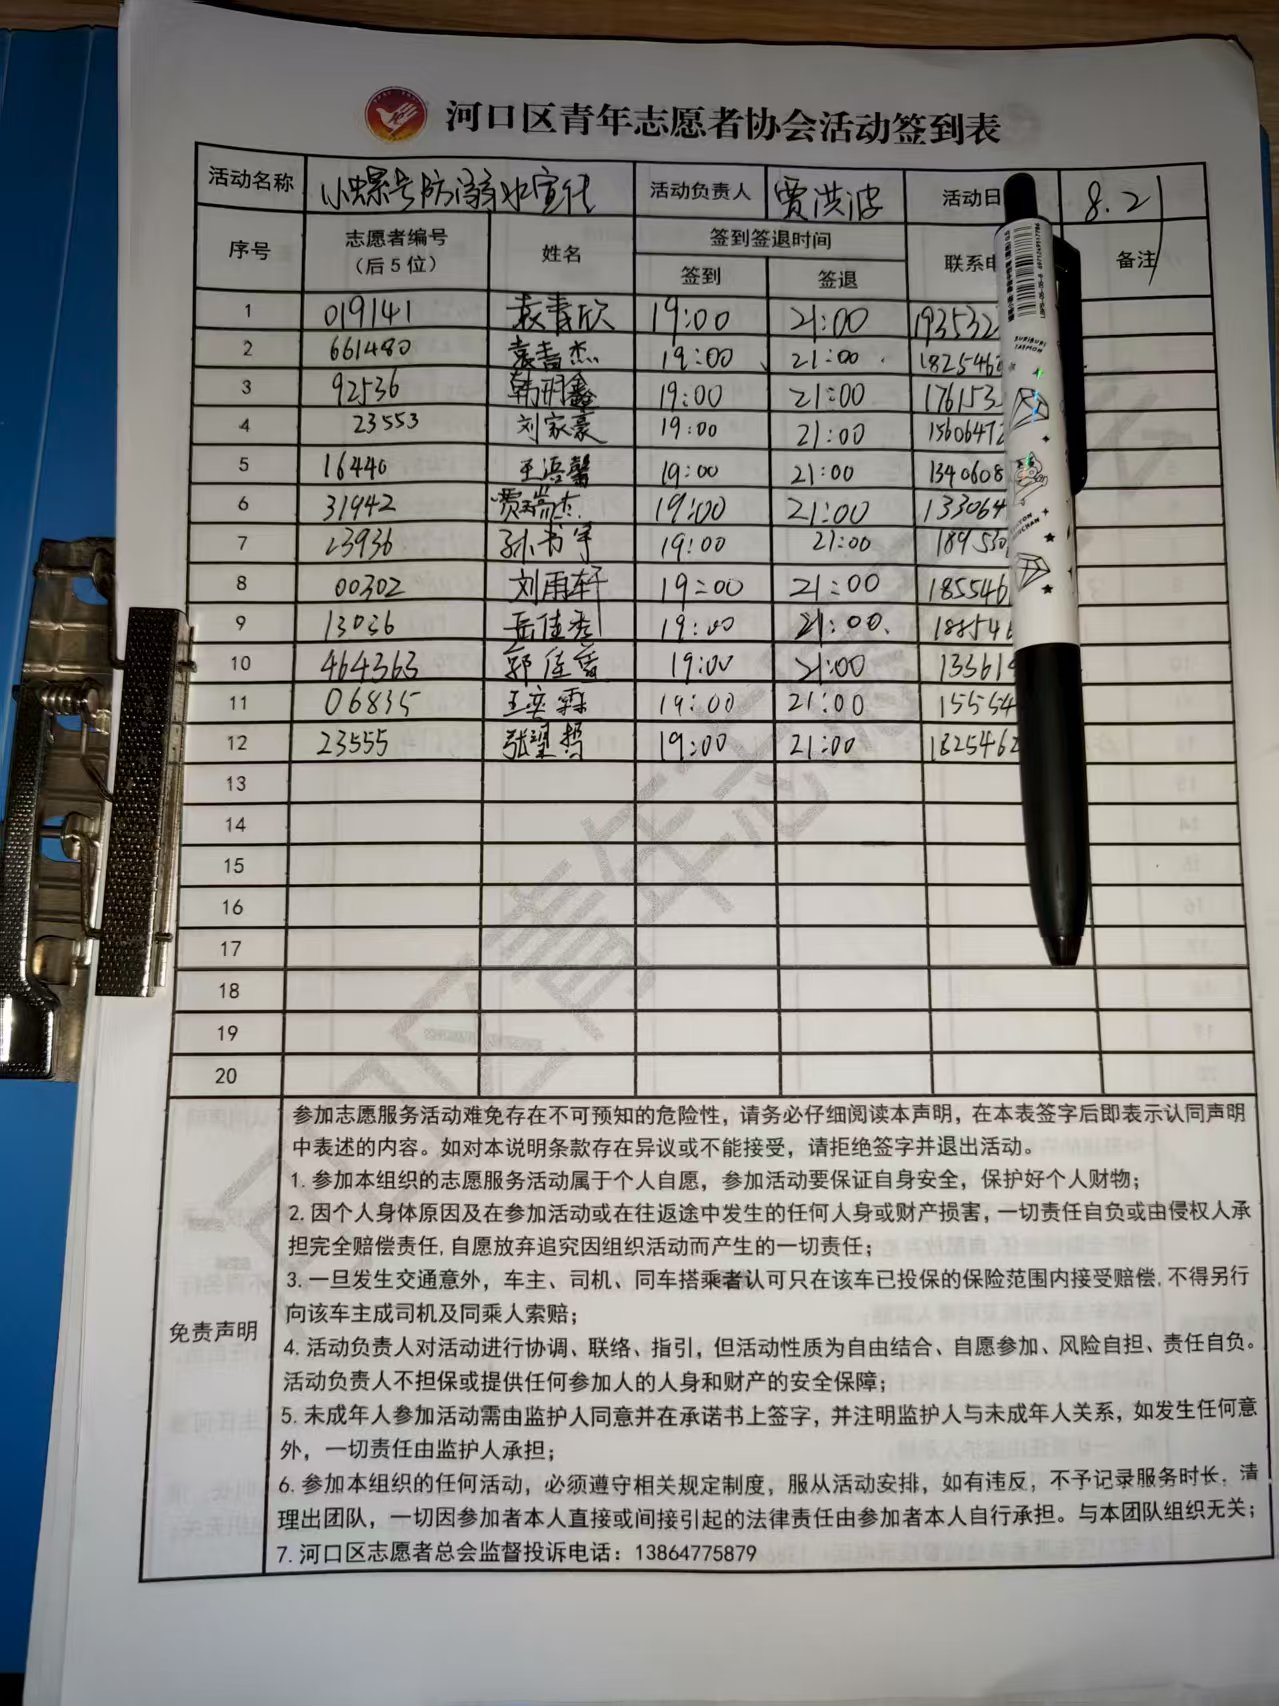 河口区青年志愿者协会活动签到表
活动名称 小螺号防溺水宣传 活动负责人 贾洪波 活动日 8.21
序号 志愿者编号（后5位） 姓名 签到签退时间 联系电 备注
签到 签退
1 019141 袁青欣 19:00 21:00 193532
2 661480 袁青杰 19:00 21:00 182546
3 92536 韩明鑫 19:00 21:00 176153
4 23553 刘家豪 19:00 21:00 1560647
5 16440 王语馨 19:00 21:00 1340608
6 31942 贾瑞杰 19:00 21:00 133064
7 23936 孙书宇 19:00 21:00 189530
8 00302 刘雨轩 19:00 21:00 185546
9 13036 岳佳秀 19:00 21:00 18854
10 464363 郭佳 19:00 21:00 13361
11 06835 王奕霖 19:00 21:00 15554
12 23555 张望哲 19:00 21:00 1825462
13
14
15
16
17
18
19
20
免责声明
参加志愿服务活动难免存在不可预知的危险性，请务必仔细阅读本声明，在本表签字后即表示认同声明
中表述的内容。如对本说明条款存在异议或不能接受，请拒绝签字并退出活动。
1. 参加本组织的志愿服务活动属于个人自愿，参加活动要保证自身安全，保护好个人财物；
2. 因个人身体原因及在参加活动或在往返途中发生的任何人身或财产损害，一切责任自负或由侵权人承
担完全赔偿责任, 自愿放弃追究因组织活动而产生的一切责任；
3. 一旦发生交通意外，车主、司机、同车搭乘者认可只在该车已投保的保险范围内接受赔偿, 不得另行
向该车主成司机及同乘人索赔；
4. 活动负责人对活动进行协调、联络、指引，但活动性质为自由结合、自愿参加、风险自担、责任自负。
活动负责人不担保或提供任何参加人的人身和财产的安全保障；
5. 未成年人参加活动需由监护人同意并在承诺书上签字，并注明监护人与未成年人关系，如发生任何意
外，一切责任由监护人承担；
6. 参加本组织的任何活动，必须遵守相关规定制度，服从活动安排，如有违反，不予记录服务时长，清
理出团队，一切因参加者本人直接或间接引起的法律责任由参加者本人自行承担。与本团队组织无关；
7. 河口区志愿者总会监督投诉电话：13864775879